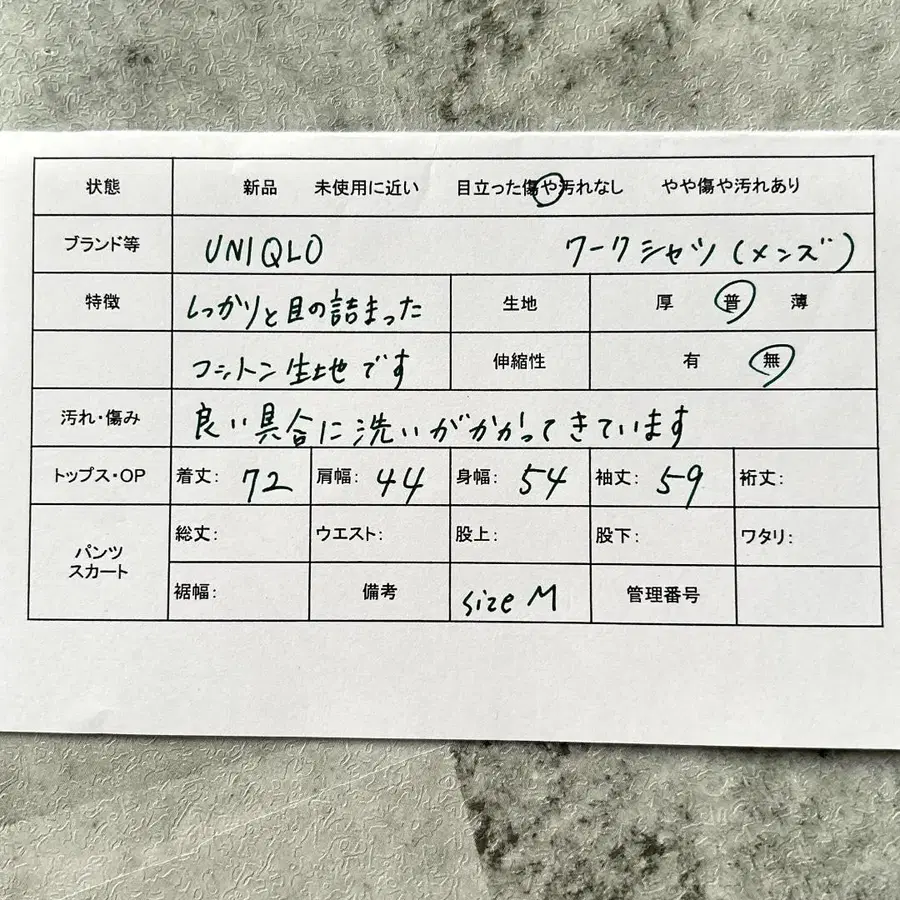 状態 新品 未使用に近い 目立った傷や汚れなし やや傷や汚れあり
ブランド等 UNIQLO ワークシャツ(メンズ)
特徴 しっかりと目の詰まった 生地 厚 普 薄
コットン生地です 伸縮性 有 無
汚れ・傷み 良い具合に洗いがかかってきています
トップス・OP 着丈: 72 肩幅: 44 身幅: 54 袖丈: 59 裄丈:
パンツ スカート 総丈: ウエスト: 股上: 股下: ワタリ:
裾幅: 備考 size M 管理番号